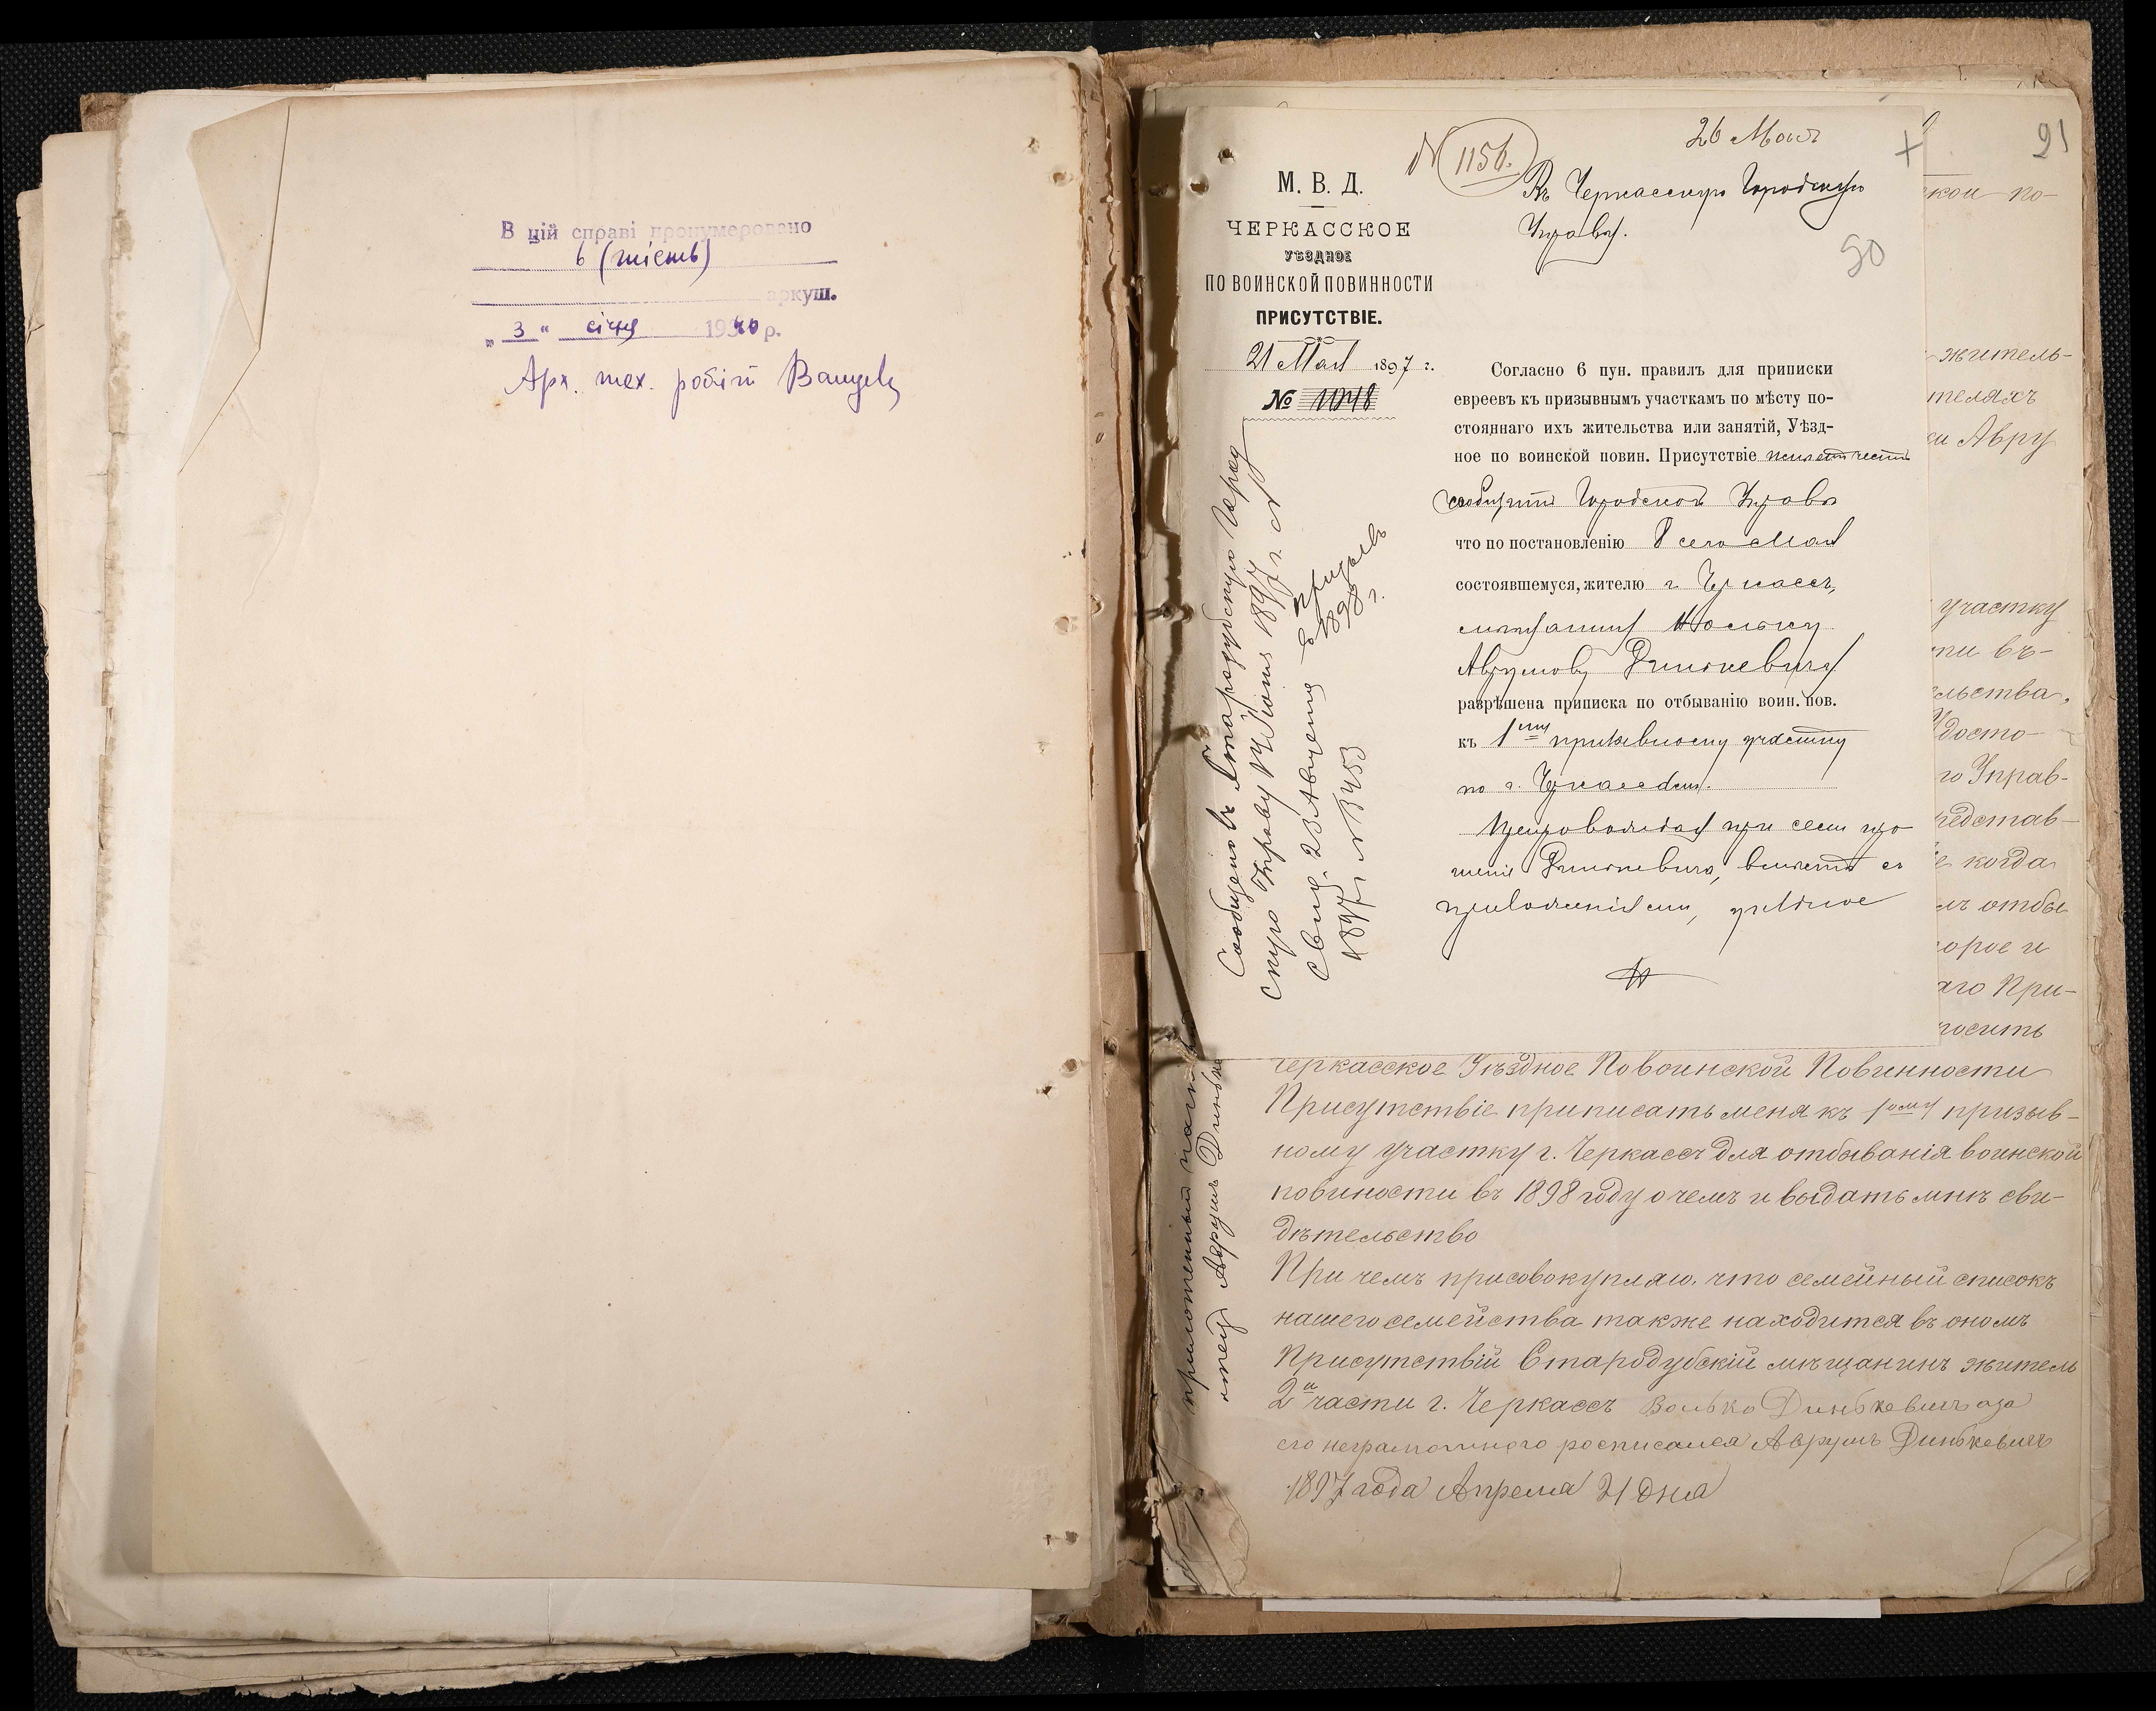 В цій справі пронумеровано
6 (шість)
аркуш.
„ 3 “ січня 1940 р.
Арх. тех. робіт
91
50
26 Мая
N 1156.
Въ Черкасскую Городскую
Управу.
М. В. Д.
ЧЕРКАССКОЕ
УѢЗДНОЕ
ПО ВОИНСКОЙ ПОВИННОСТИ
ПРИСУТСТВІЕ.
21 Мая 1897 г.
№ 1048
Согласно 6 пун. правилъ для приписки
евреевъ къ призывнымъ участкамъ по мѣсту по-
стояннаго ихъ жительства или занятій, Уѣзд-
ное по воинской повин. Присутствіе имѣетъ честь
сообщить Городской Управѣ
что по постановленію 8 сего Мая
состоявшемуся, жителю г. Черкассъ,
мѣщанину Вольку
Аврумову Динькевичу
разрѣшена приписка по отбыванію воин. пов.
къ 1ому призывному участку
по г. Черкассамъ.
Препровождая при семъ про
шеніе Динькевича, вмѣстѣ съ
приложеніями, уѣздное
Сообщено въ Стародубскую Город
скую Управу Іюня 1897 г. N
Свид. 23 Августа
1897 г. N 3453
призывъ
1898 г.
кой по-
житель-
теляхъ
Авру
участку
ти въ-
льства,
досто-
го Управ-
редстав-
когда
отбы
орое и
аго При-
осить
Черкасское Уѣздное Повоинской Повинности
Присутствіе приписать меня къ 1ому призыв-
ному участку г. Черкассъ для отбыванія воинской
повиности въ 1898 году о чемъ и выдать мнѣ сви-
дѣтельство
При чемъ присовокупляю, что семейный списокъ
нашего семейства также находится въ ономъ
Присутствій Стародубскій мѣщанинъ житель
2й части г. Черкассъ Волько Динькевичъ а за
его неграмотного росписался Аврумъ Динькевичъ
1897 года Апреля 21 дня
отецъ Аврумъ Динькев